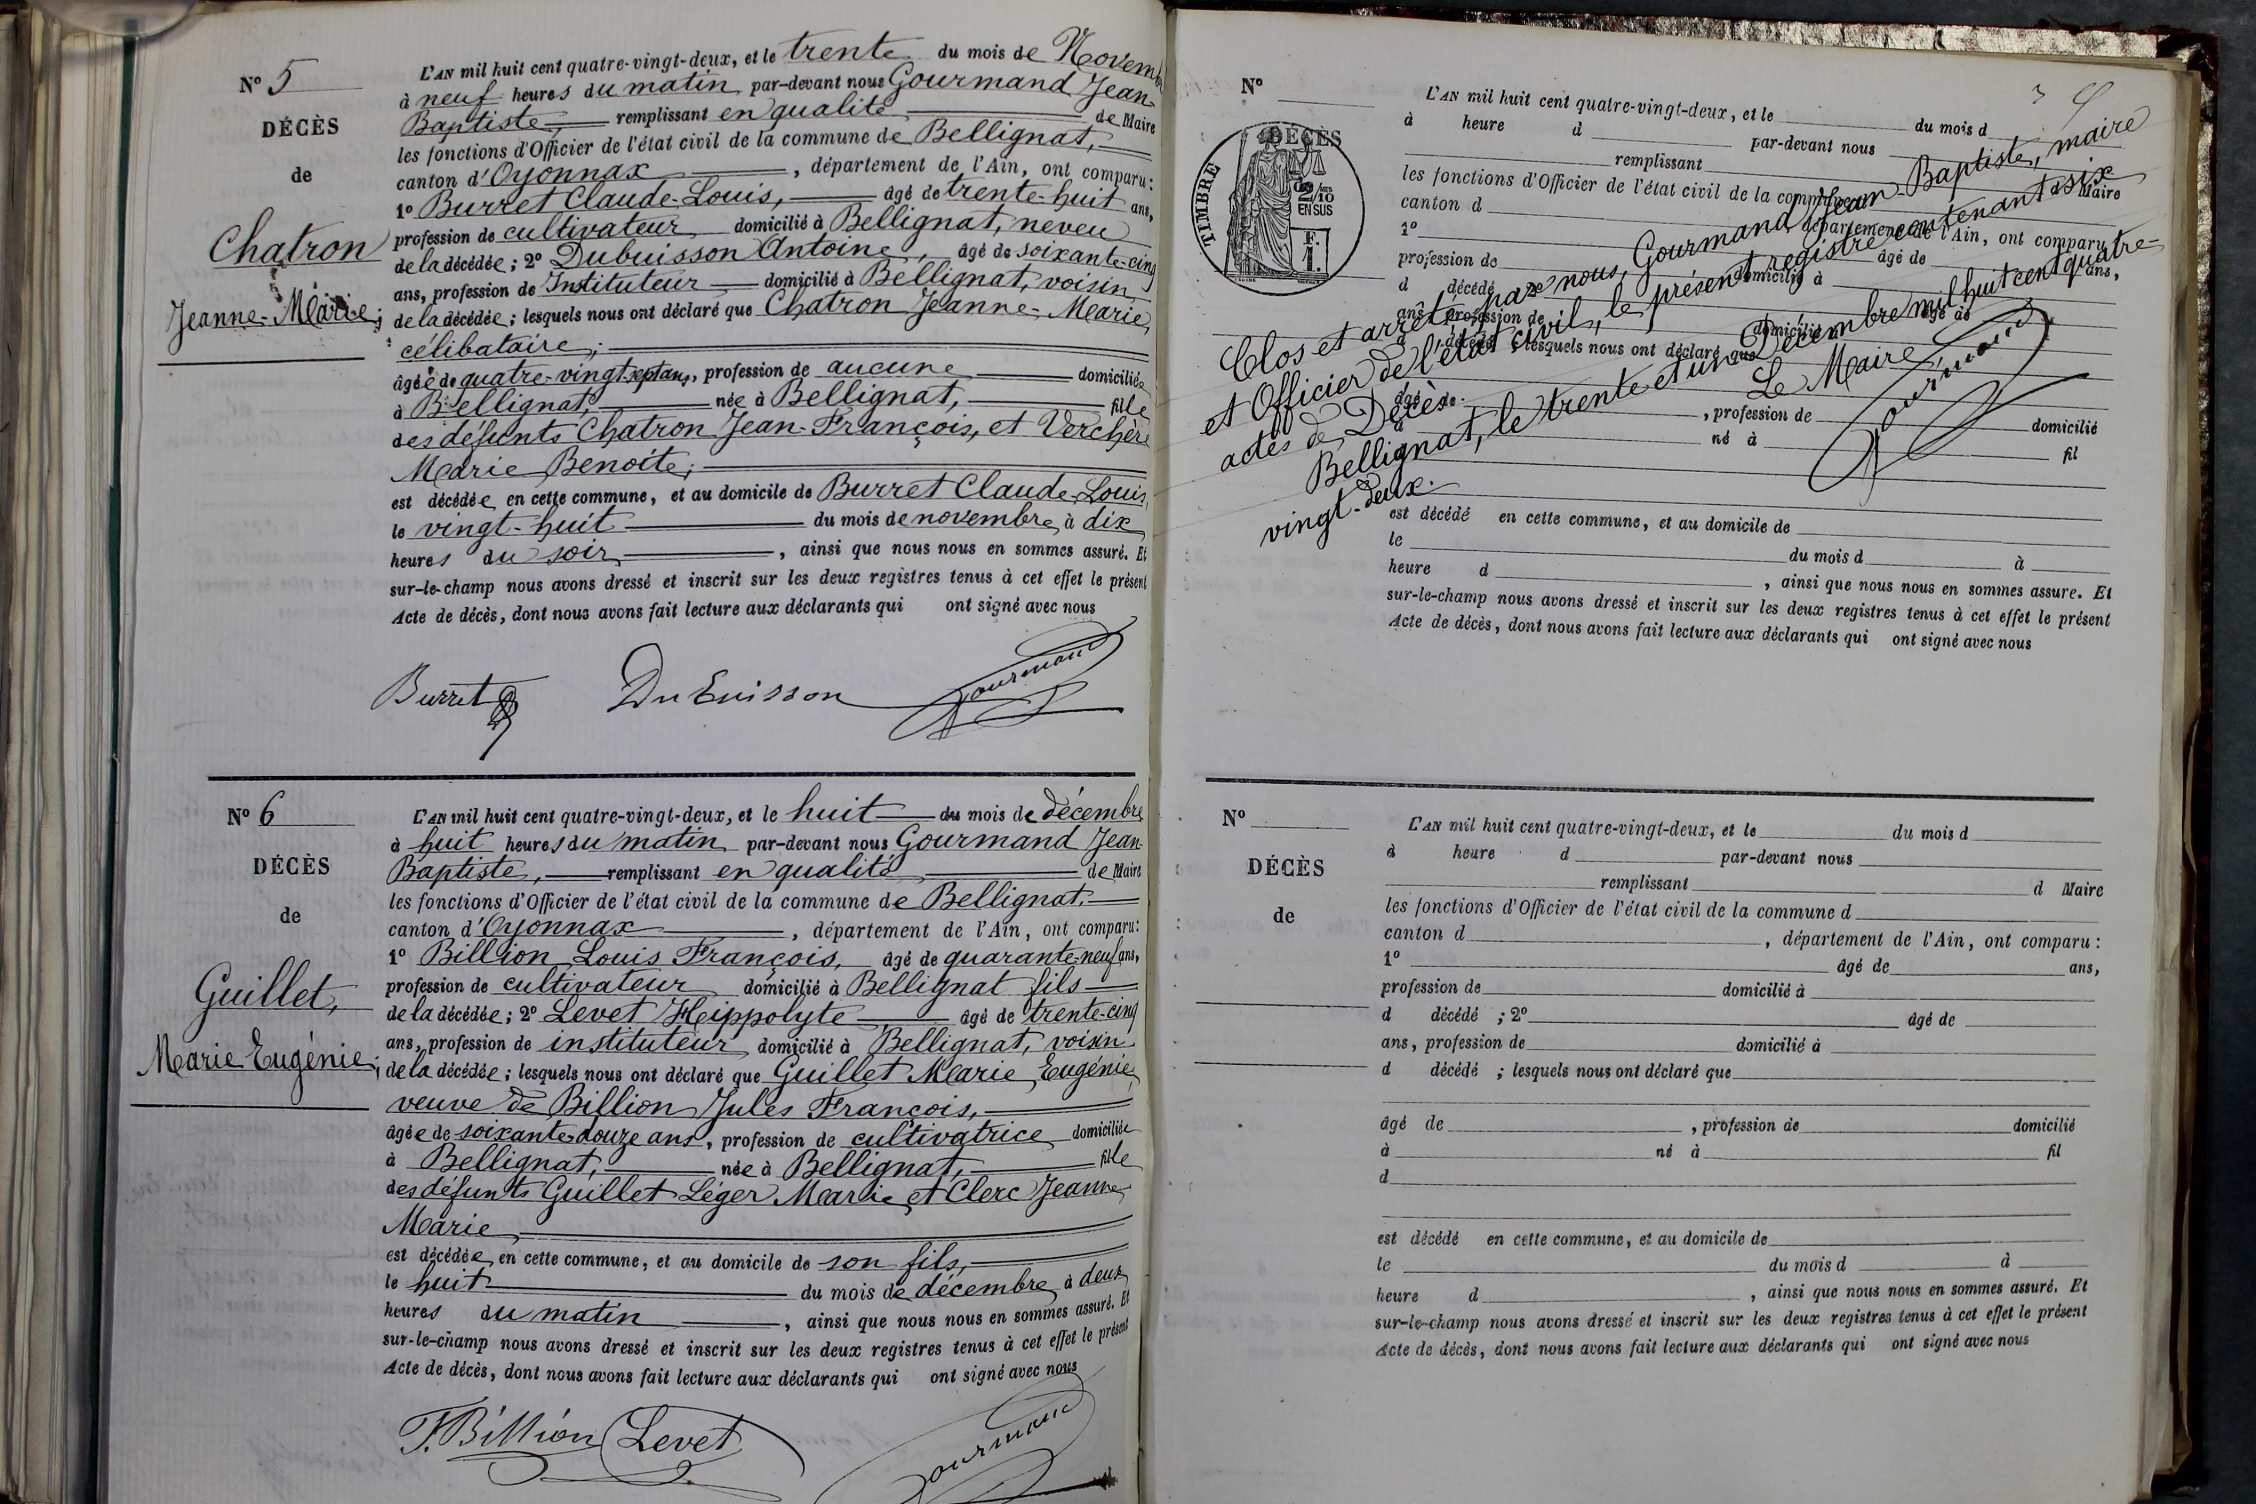 N° 5
DÉCÈS
de
Chatron
Jeanne-Marie;
L'AN mil huit cent quatre-vingt-deux, et le trente du mois de Novembre
à neuf heures du matin par-devant nous Gourmand Jean-
Baptiste, remplissant en qualité de Maire
les fonctions d'Officier de l'état civil de la commune de Bellignat,
canton d'Oyonnax, département de l'Ain, ont comparu:
1° Burret Claude-Louis, âgé de trente-huit ans,
profession de cultivateur domicilié à Bellignat, neveu
de la décédée; 2° Dubuisson Antoine, âgé de soixante-cinq
ans, profession de Instituteur domicilié à Bellignat, voisin
de la décédée; lesquels nous ont déclaré que Chatron Jeanne-Marie,
célibataire;
âgée de quatre-vingt-sept ans, profession de aucune domiciliée
à Bellignat, née à Bellignat, fille
des défunts Chatron Jean-François, et Verchère
Marie Benoite;
est décédée en cette commune, et au domicile de Burret Claude-Louis
le vingt-huit du mois de novembre à dix
heures du soir, ainsi que nous nous en sommes assuré. Et
sur-le-champ nous avons dressé et inscrit sur les deux registres tenus à cet effet le présent
Acte de décès, dont nous avons fait lecture aux déclarants qui ont signé avec nous
Burret Dubuisson Gourmand
N° 6
DÉCÈS
de
Guillet,
Marie Eugénie;
L'AN mil huit cent quatre-vingt-deux, et le huit du mois de décembre
à huit heures du matin par-devant nous Gourmand Jean-
Baptiste, remplissant en qualité de Maire
les fonctions d'Officier de l'état civil de la commune de Bellignat,
canton d'Oyonnax, département de l'Ain, ont comparu:
1° Billion Louis François, âgé de quarante-neuf ans,
profession de cultivateur domicilié à Bellignat fils
de la décédée; 2° Levet Heippolyte âgé de trente-cinq
ans, profession de instituteur domicilié à Bellignat, voisin
de la décédée; lesquels nous ont déclaré que Guillet Marie Eugénie,
veuve de Billion Jules François,
âgée de soixante-douze ans, profession de cultivatrice domiciliée
à Bellignat, née à Bellignat, fille
des défunts Guillet Léger Marie et Clerc Jeanne
Marie
est décédée en cette commune, et au domicile de son fils,
le huit du mois de décembre à deux
heures du matin, ainsi que nous nous en sommes assuré. Et
sur-le-champ nous avons dressé et inscrit sur les deux registres tenus à cet effet le présent
Acte de décès, dont nous avons fait lecture aux déclarants qui ont signé avec nous
F. Billion Levet Gourmand
N°
DÉCÈS
TIMBRE
2/10
EN SUS
F.
1.
L'AN mil huit cent quatre-vingt-deux, et le du mois d
à heure d par-devant nous
remplissant d Maire
les fonctions d'Officier de l'état civil de la commune d
canton d, département de l'Ain, ont comparu:
1° âgé de ans,
profession de domicilié à
d décédé âgé de
ans, profession de domicilié à
d décédé; lesquels nous ont déclaré que
âgé de, profession de domicilié
à né à fil
est décédé en cette commune, et au domicile de
le du mois d à
heure d, ainsi que nous nous en sommes assuré. Et
sur-le-champ nous avons dressé et inscrit sur les deux registres tenus à cet effet le présent
Acte de décès, dont nous avons fait lecture aux déclarants qui ont signé avec nous
Clos et arrêté par nous, Gourmand Jean-Baptiste, maire
et Officier de l'état civil, le présent registre contenant six
actes de Décès.
Bellignat, le trente et un Décembre mil huit cent quatre-
vingt-deux.
Le Maire
Gourmand
N°
DÉCÈS
de
L'AN mil huit cent quatre-vingt-deux, et le du mois d
à heure d par-devant nous
remplissant d Maire
les fonctions d'Officier de l'état civil de la commune d
canton d, département de l'Ain, ont comparu:
1° âgé de ans,
profession de domicilié à
d décédé; 2° âgé de
ans, profession de domicilié à
d décédé; lesquels nous ont déclaré que
âgé de, profession de domicilié
à né à fil
d
est décédé en cette commune, et au domicile de
le du mois d à
heure d, ainsi que nous nous en sommes assuré. Et
sur-le-champ nous avons dressé et inscrit sur les deux registres tenus à cet effet le présent
Acte de décès, dont nous avons fait lecture aux déclarants qui ont signé avec nous